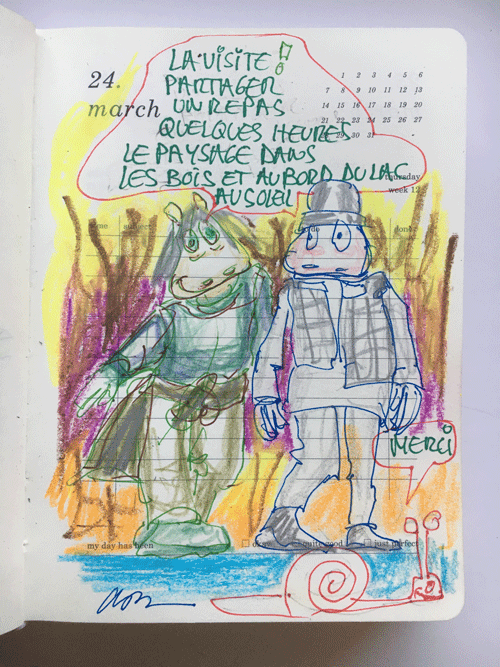 24.
march
1 2 3 4 5 6
7 8 9 10 11 12 13
14 15 16 17 18 19 20
21 22 23 24 25 26 27
29 30 31
LA VISITE !
PARTAGER
UN REPAS
QUELQUES HEURES
LE PAYSAGE DANS
LES BOIS ET AU BORD DU LAC
AU SOLEIL
thursday
week 12
subject
done
MERCI
my day has been
quite good
just perfect